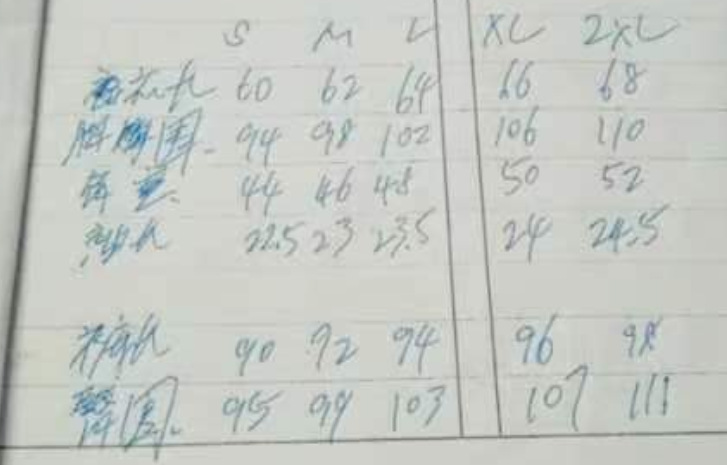 S M L XL 2XL
衣长 60 62 64 66 68
胸围 94 98 102 106 110
肩宽 44 46 48 50 52
袖长 22.5 23 23.5 24 24.5
裤长 90 92 94 96 98
臀围 95 99 103 107 111